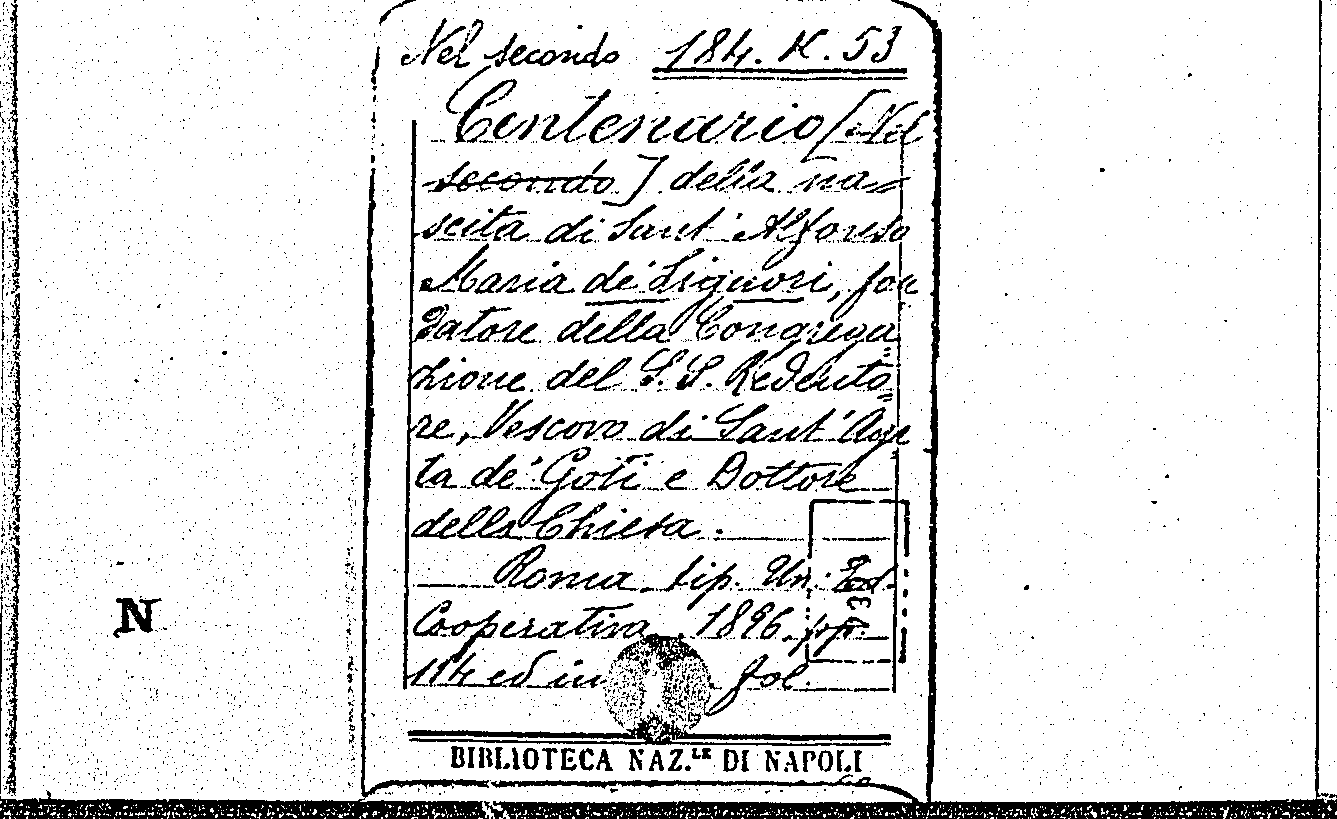 Nel secondo 184. K. 53
Centenario [Nel
secondo] della na=
scita di Sant' Alfonso
Maria de' Liguori, fon
datore della Congrega=
zione del S. S. Redento=
re, Vescovo di Sant' Aga=
ta de' Goti e Dottore
della Chiesa.
Roma. tip. Un. Ed.
Cooperativa. 1896. pp.
114 ed in fol.
N
BIBLIOTECA NAZ.LE DI NAPOLI